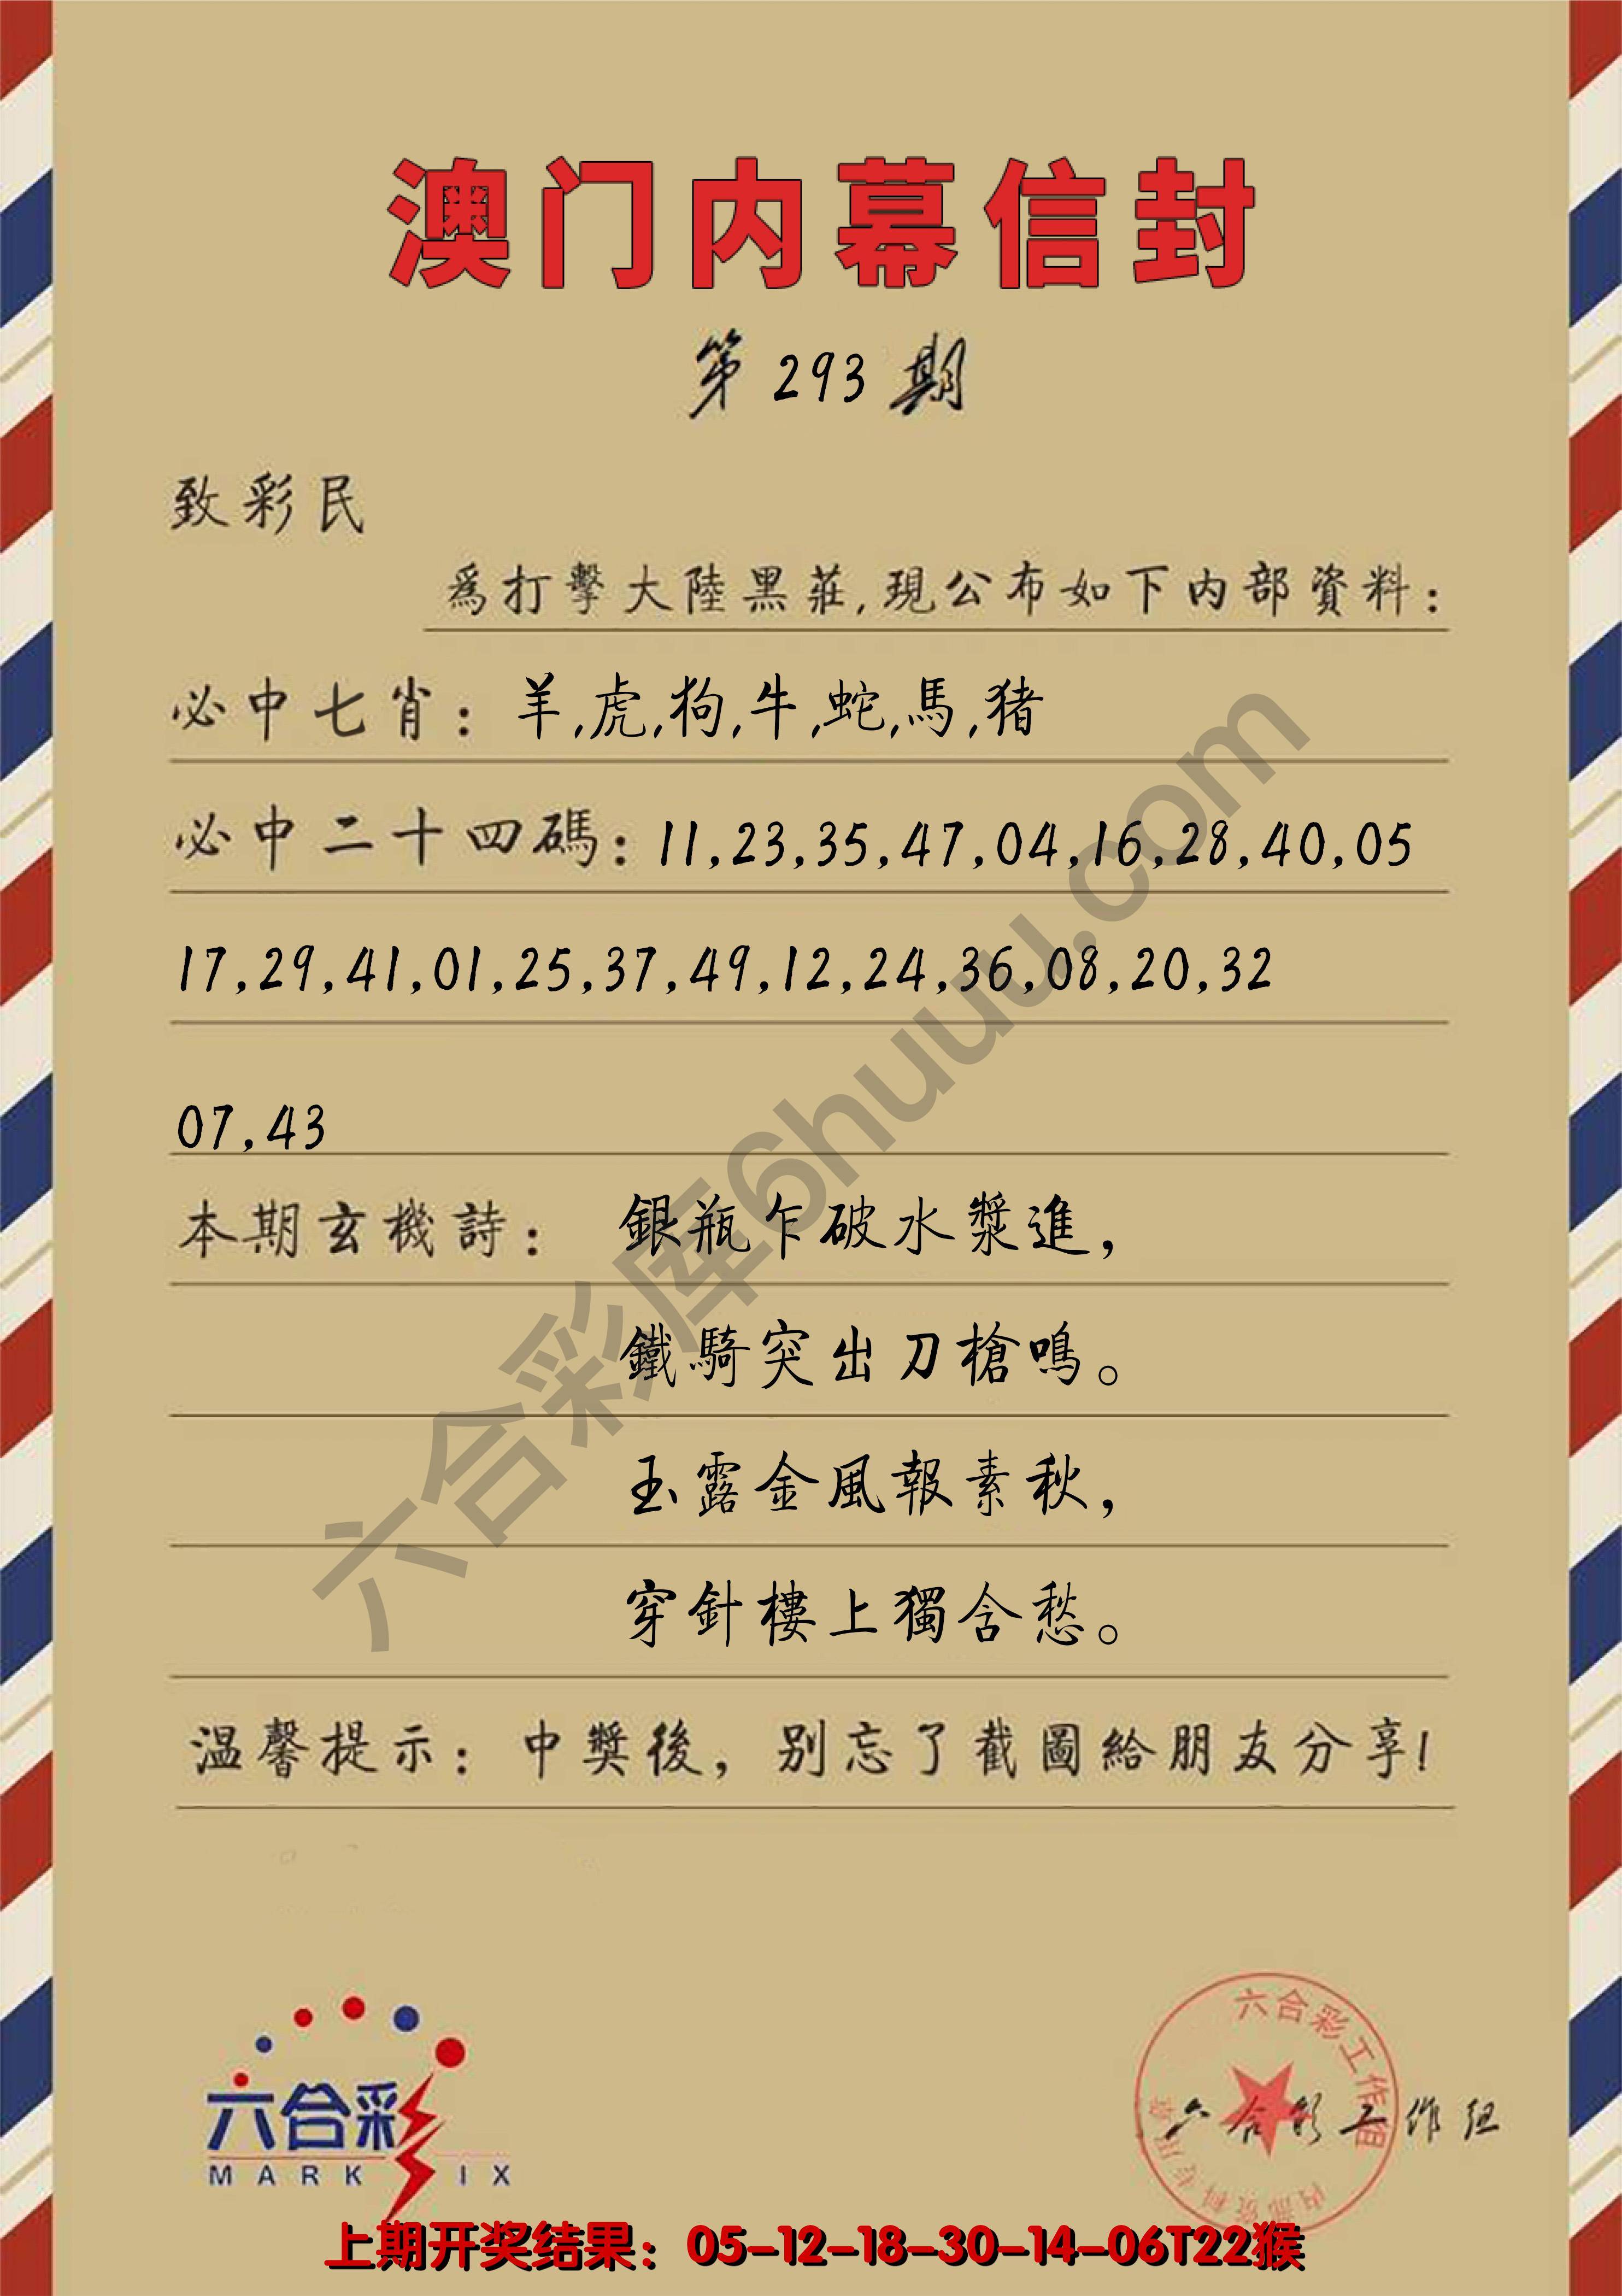 澳门内幕信封
第293期
致彩民
爲打擊大陸黑莊,現公布如下内部資料:
必中七肖: 羊,虎,狗,牛,蛇,馬,猪
必中二十四碼: 11,23,35,47,04,16,28,40,05
17,29,41,01,25,37,49,12,24,36,08,20,32
07,43
本期玄機詩: 銀瓶乍破水漿進,
鐵騎突出刀槍鳴。
玉露金風報素秋,
穿針樓上獨含愁。
温馨提示: 中獎後, 别忘了截圖給朋友分享!
六合彩库6huuu.com
六合彩
MARK IX
六合彩工作组
内部资料专用章
六合彩工作组
上期开奖结果: 05-12-18-30-14-06T22猴